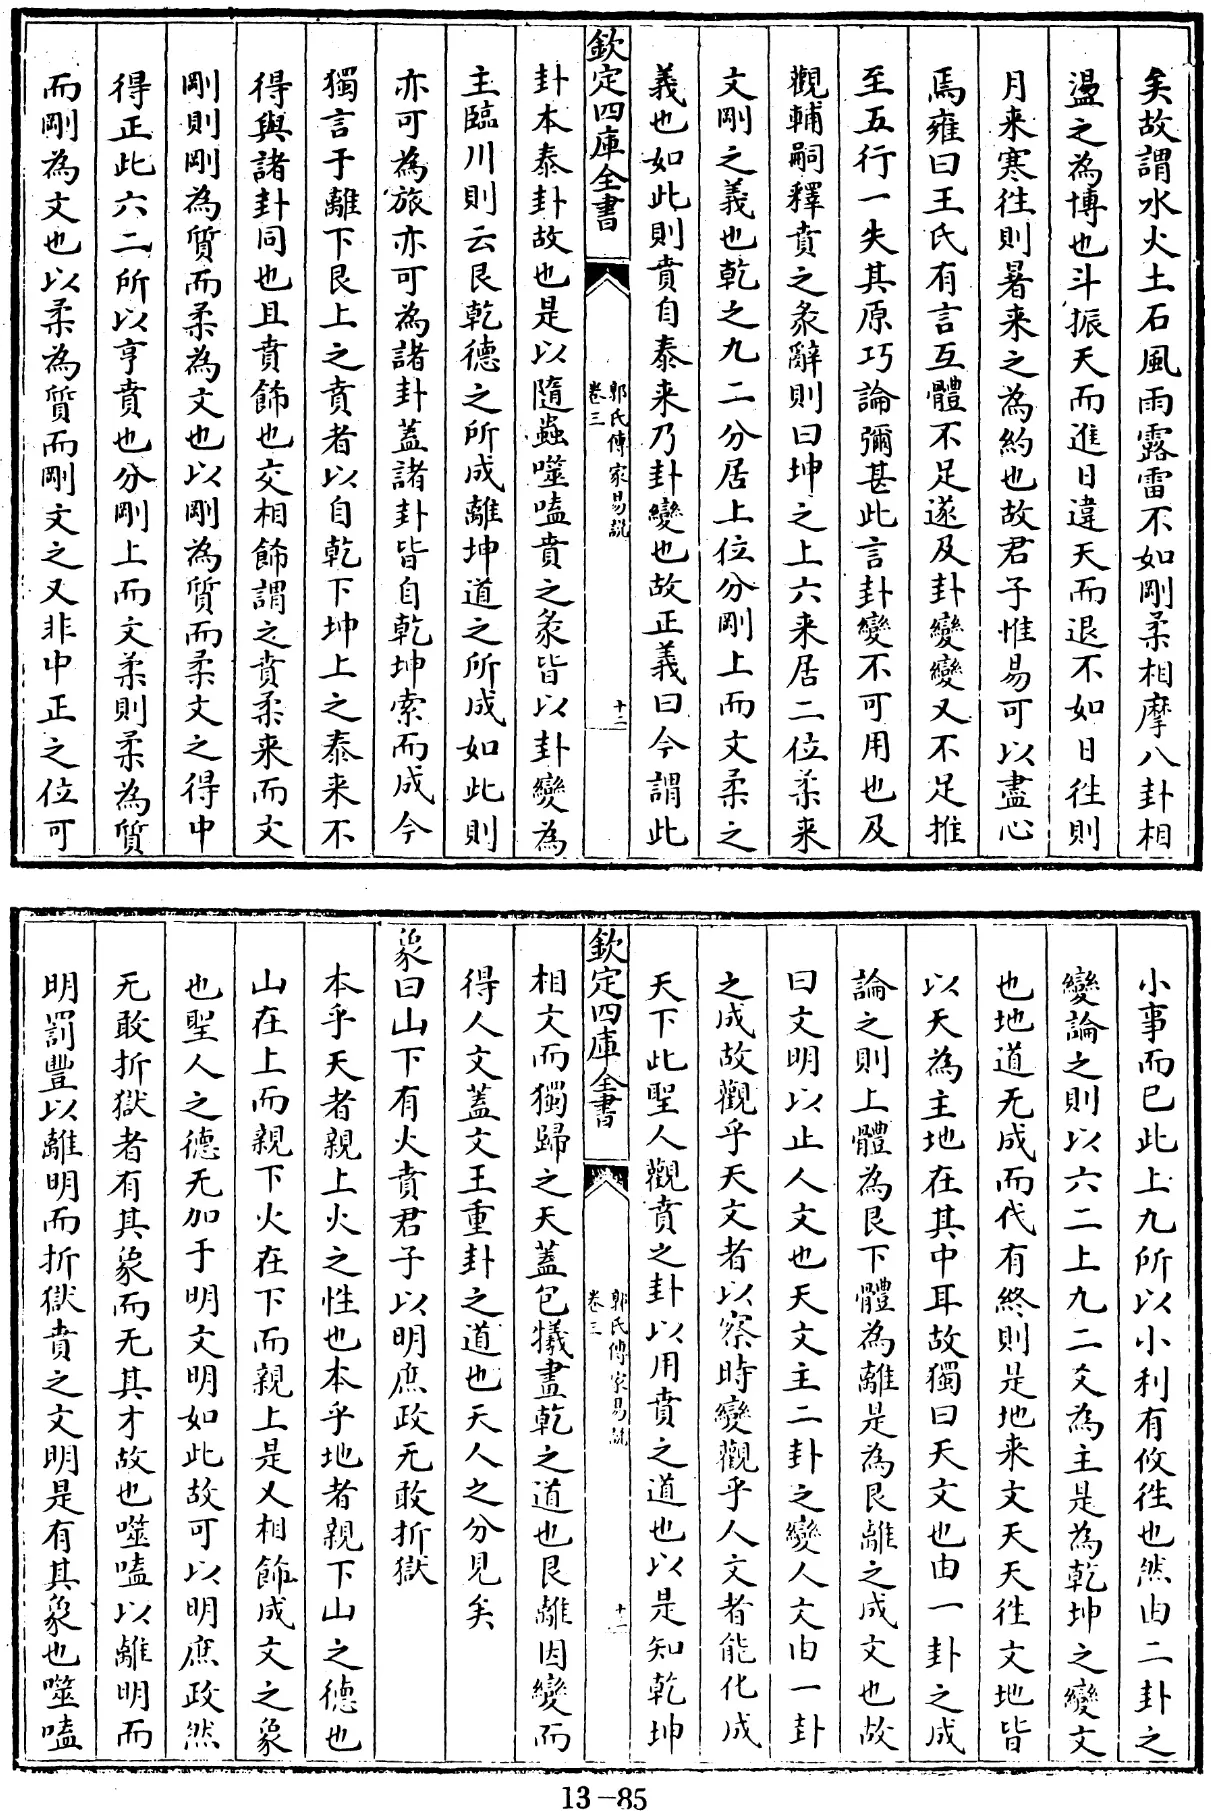 矣故謂水火土石風雨露雷不如剛柔相摩八卦相
盪之為博也斗振天而進日違天而退不如日往則
月来寒往則暑来之為約也故君子惟易可以盡心
焉雍曰王氏有言互體不足遂及卦變變又不足推
至五行一失其原巧論彌甚此言卦變不可用也及
觀輔嗣釋賁之彖辭則曰坤之上六来居二位柔来
文剛之義也乾之九二分居上位分剛上而文柔之
義也如此則賁自泰来乃卦變也故正義曰今謂此
欽定四庫全書
郭氏傳家易說
卷三
十二
卦本泰卦故也是以隨蠱噬嗑賁之彖皆以卦變為
主臨川則云艮乾德之所成離坤道之所成如此則
亦可為旅亦可為諸卦蓋諸卦皆自乾坤索而成今
獨言于離下艮上之賁者以自乾下坤上之泰来不
得與諸卦同也且賁飾也交相飾謂之賁柔来而文
剛則剛為質而柔為文也以剛為質而柔文之得中
得正此六二所以亨賁也分剛上而文柔則柔為質
而剛為文也以柔為質而剛文之又非中正之位可
小事而已此上九所以小利有攸往也然由二卦之
變論之則以六二上九二爻為主是為乾坤之變文
也地道无成而代有終則是地来文天天往文地皆
以天為主地在其中耳故獨曰天文也由一卦之成
論之則上體為艮下體為離是為艮離之成文也故
曰文明以止人文也天文主二卦之變人文由一卦
之成故觀乎天文者以察時變觀乎人文者能化成
天下此聖人觀賁之卦以用賁之道也以是知乾坤
欽定四庫全書
郭氏傳家易說
卷三
十二
相文而獨歸之天蓋包犧畫乾之道也艮離因變而
得人文蓋文王重卦之道也天人之分見矣
象曰山下有火賁君子以明庶政无敢折獄
本乎天者親上火之性也本乎地者親下山之德也
山在上而親下火在下而親上是乂相飾成文之象
也聖人之德无加于明文明如此故可以明庶政然
无敢折獄者有其象而无其才故也噬嗑以離明而
明罰豐以離明而折獄賁之文明是有其象也噬嗑
13-85